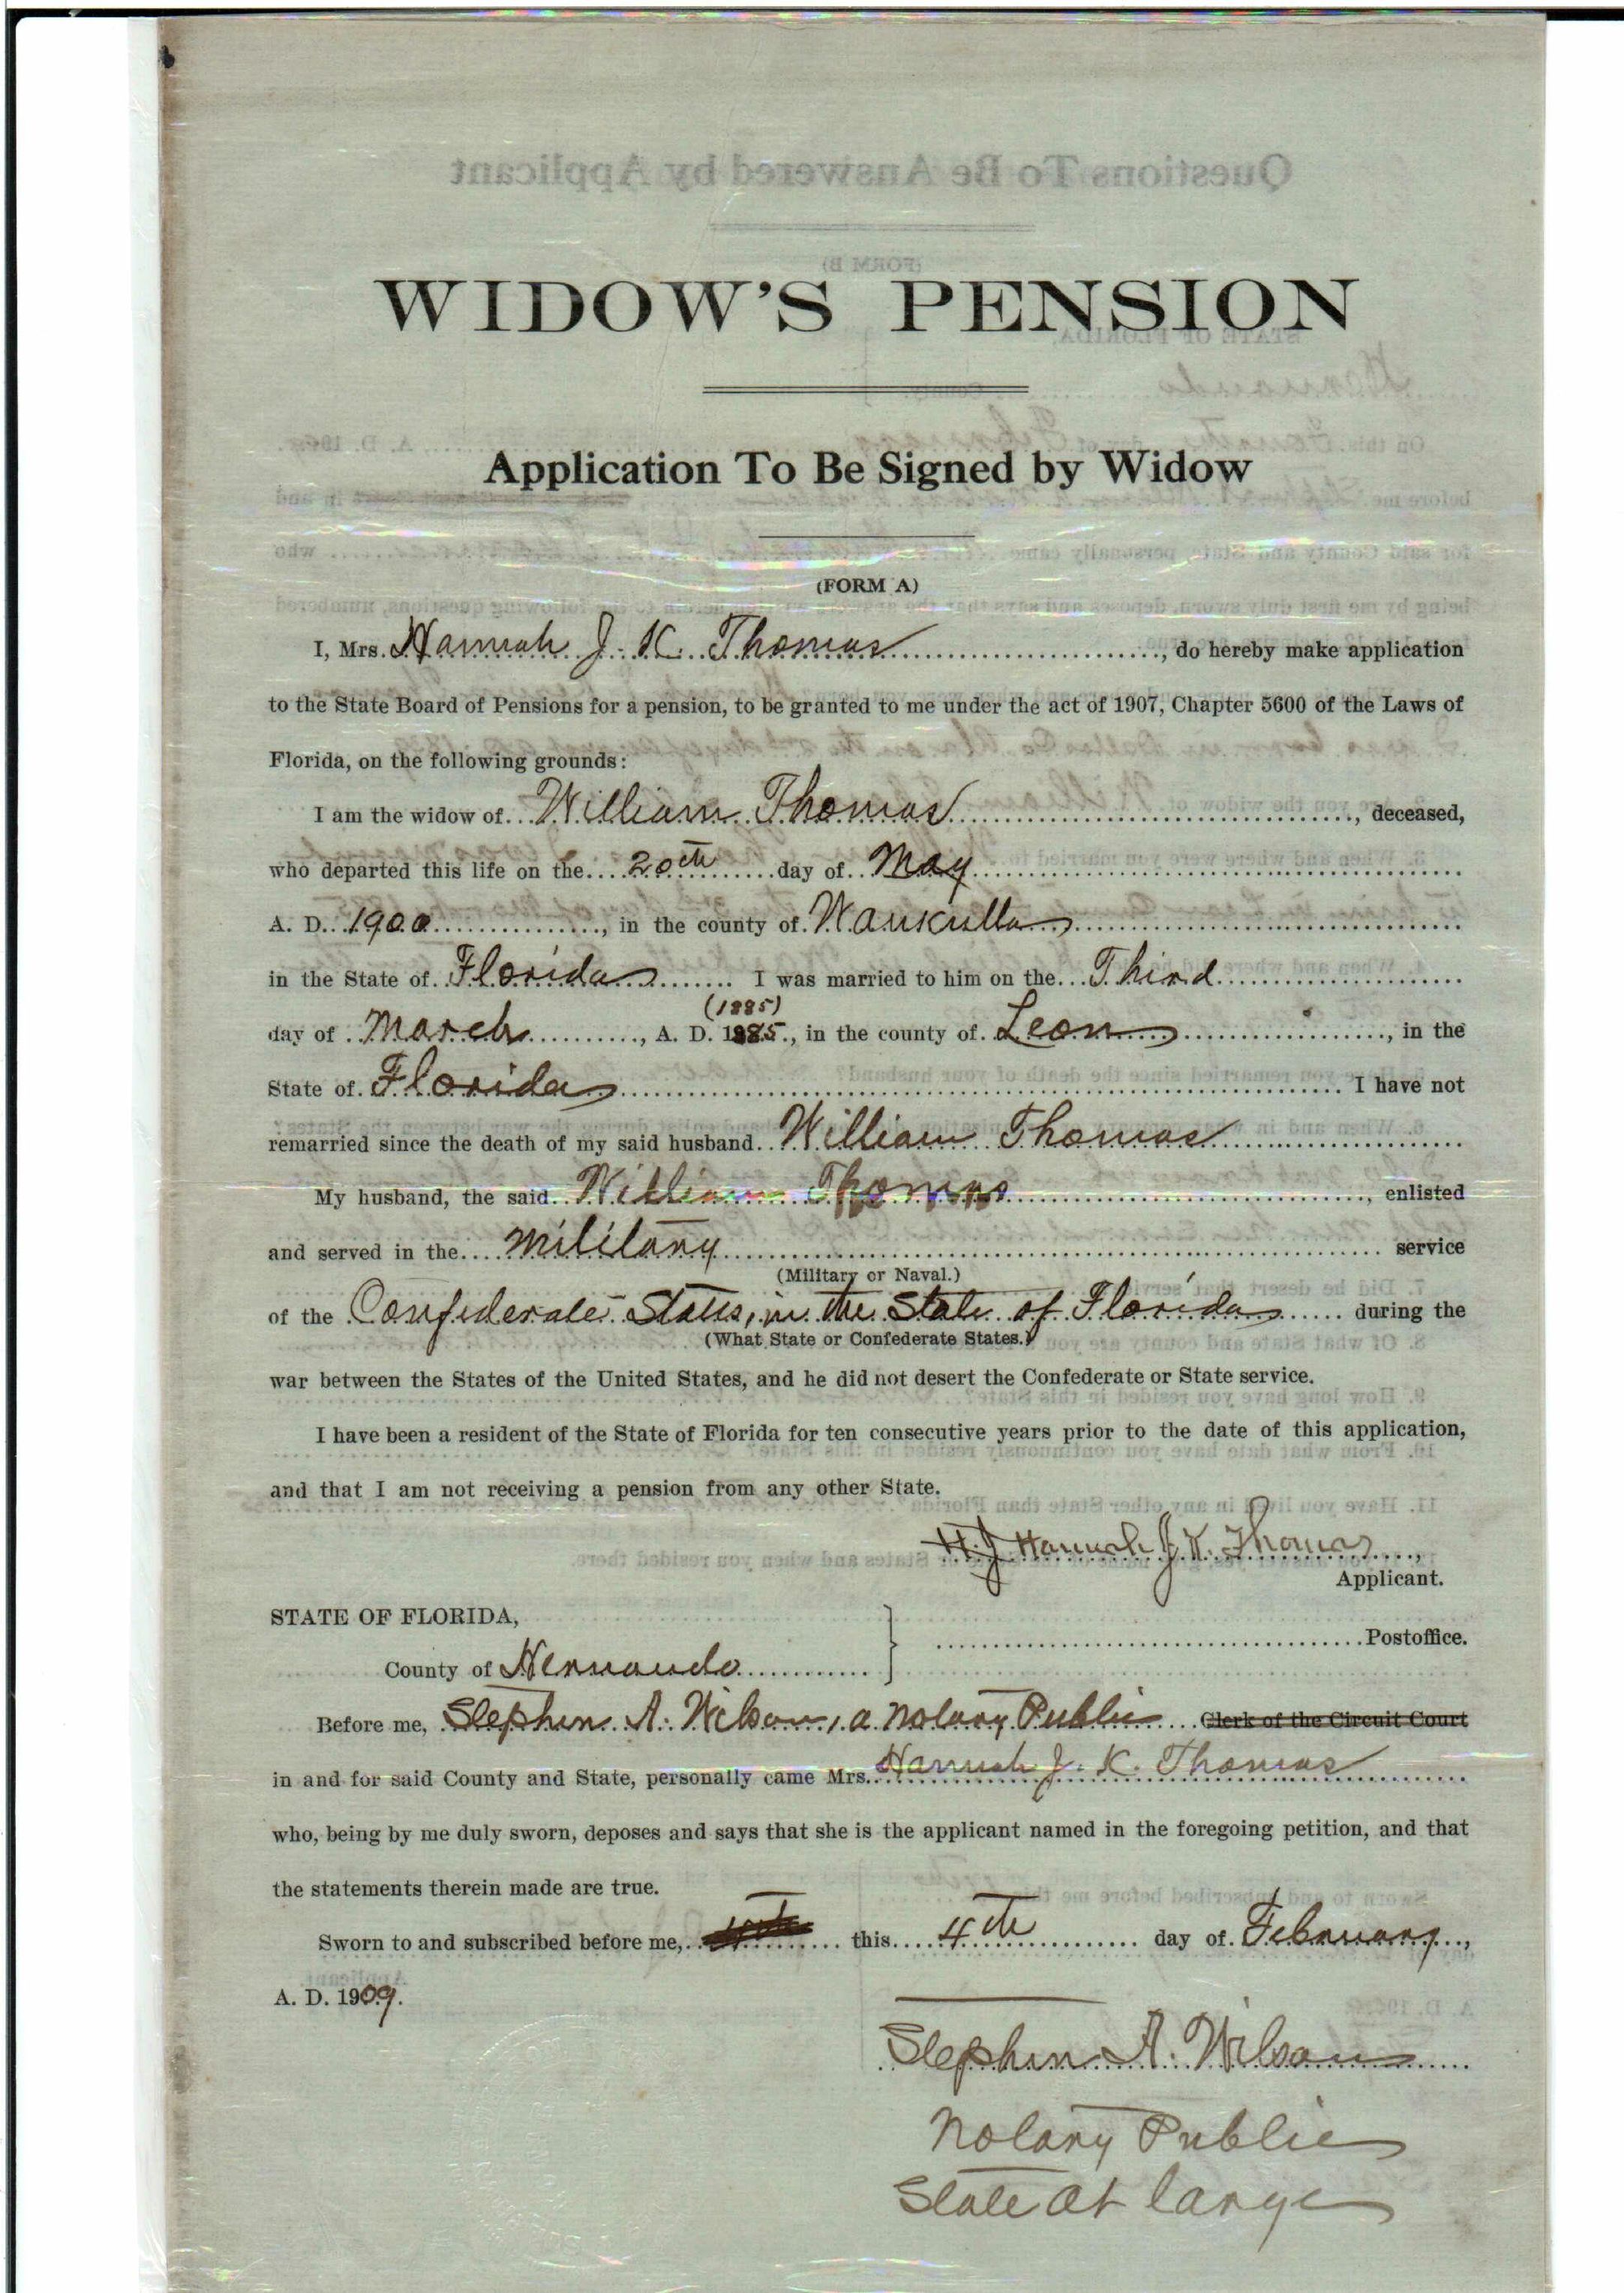 WIDOW'S PENSION
Application To Be Signed by Widow
(FORM A)
I, Mrs. Hannah J. K. Thomas, do hereby make application
to the State Board of Pensions for a pension, to be granted to me under the act of 1907, Chapter 5600 of the Laws of
Florida, on the following grounds:
I am the widow of William Thomas, deceased,
who departed this life on the 20th day of May
A. D. 1900, in the county of Waukulla
in the State of Florida I was married to him on the Third
(1885)
day of March, A. D. 1885, in the county of Leon, in the
State of Florida I have not
remarried since the death of my said husband William Thomas
My husband, the said William Thomas, enlisted
and served in the military service
(Military or Naval.)
of the Confederate States, in the State of Florida during the
(What State or Confederate States.)
war between the States of the United States, and he did not desert the Confederate or State service.
I have been a resident of the State of Florida for ten consecutive years prior to the date of this application,
and that I am not receiving a pension from any other State.
H. J Hannah J K. Thomas,
Applicant.
STATE OF FLORIDA,
Postoffice.
County of Hernando
Before me, Stephen A. Wilson, a Notary Public Clerk of the Circuit Court
in and for said County and State, personally came Mrs. Hannah J. K. Thomas
who, being by me duly sworn, deposes and says that she is the applicant named in the foregoing petition, and that
the statements therein made are true.
Sworn to and subscribed before me, this 4th day of February,
A. D. 1909.
Stephen A. Wilson
Notary Public
State at large